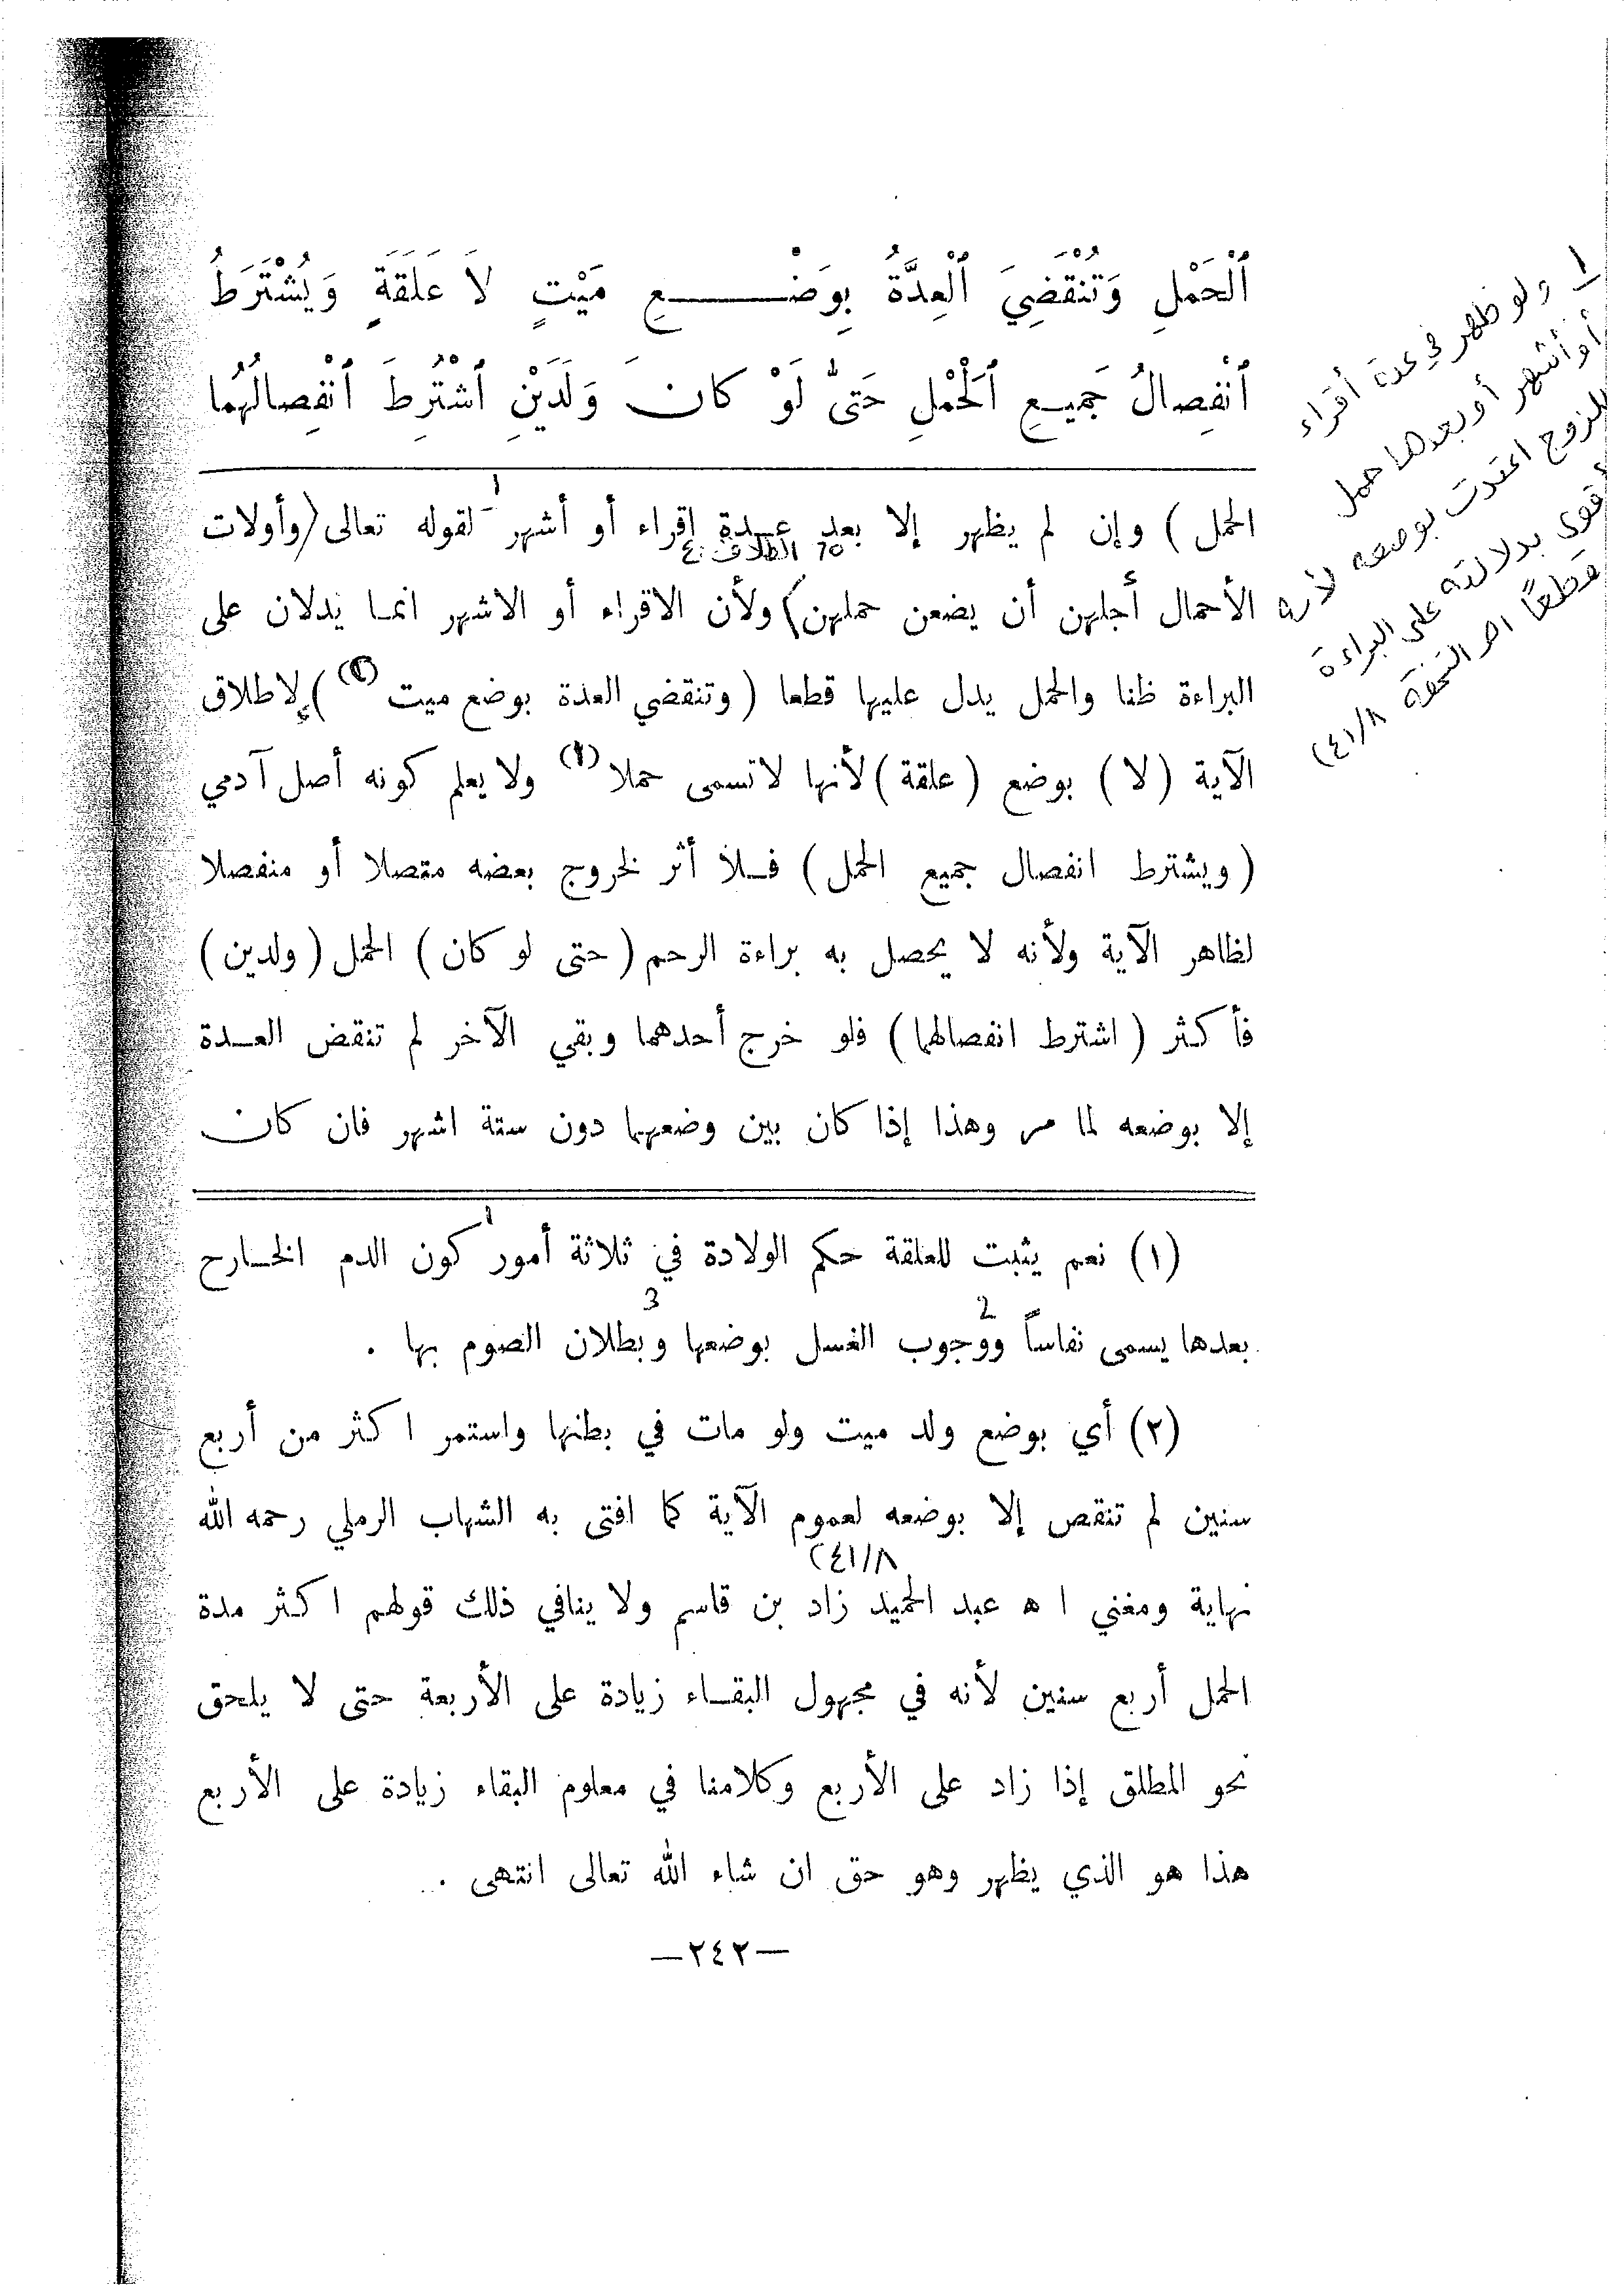 ٱلْحَمْلِ وَتَنْقَضِيَ ٱلْعِدَّةُ بِوَضْعِ مَيْتٍ لاَ عَلَقَةٍ وَيُشْتَرَطُ
ٱنْفِصالُ جَمِيعِ ٱلْحَمْلِ حَتىَّ لَوْ كانَ وَلَدَيْنِ ٱشْتُرِطَ ٱنْفِصالُهُما
الحمل) وإن لم يظهر إلا بعد عدة اقراء أو أشهر ١ لقوله تعالى (وأولات
65 الطلاق: ٤
الأحمال أجلهن أن يضعن حملهن) ولأن الاقراء أو الاشهر انما يدلان على
البراءة ظنا والحمل يدل عليها قطعا (وتنقضي العدة بوضع ميت (٢)) لاطلاق
الآية (لا) بوضع (علقة) لأنها لاتسمى حملا (١) ولا يعلم كونه أصل آدمي
(ويشترط انفصال جميع الحمل) فلا أثر لخروج بعضه متصلا أو منفصلا
لظاهر الآية ولأنه لا يحصل به براءة الرحم (حتى لو كان) الحمل (ولدين)
فأكثر (اشترط انفصالهما) فلو خرج أحدهما وبقي الآخر لم تنقض العدة
إلا بوضعه لما مر وهذا إذا كان بين وضعهما دون ستة اشهر فان كان
(١) نعم يثبت للعلقة حكم الولادة في ثلاثة أمور ١ كون الدم الخارح
بعدها يسمى نفاساً 2 ووجوب الغسل بوضعها 3 وبطلان الصوم بها .
(٢) أي بوضع ولد ميت ولو مات في بطنها واستمر اكثر من أربع
سنين لم تنقص إلا بوضعه لعموم الآية كما افتى به الشهاب الرملي رحمه الله
(٤١/٨
نهاية ومغني ا ه عبد الحميد زاد بن قاسم ولا ينافي ذلك قولهم اكثر مدة
الحمل أربع سنين لأنه في مجهول البقاء زيادة على الأربعة حتى لا يلحق
نحو المطلق إذا زاد على الأربع وكلامنا في معلوم البقاء زيادة على الأربع
هذا هو الذي يظهر وهو حق ان شاء الله تعالى انتهى .
—٢٤٢—
١ ولو ظهر في عدة أقراء
أو أشهر أو بعدها حمل
للزوج اعتدت بوضعه لأنه
أقوى بدلالته على البراءة
قطعًا اهـ التحفة ٤١/٨)